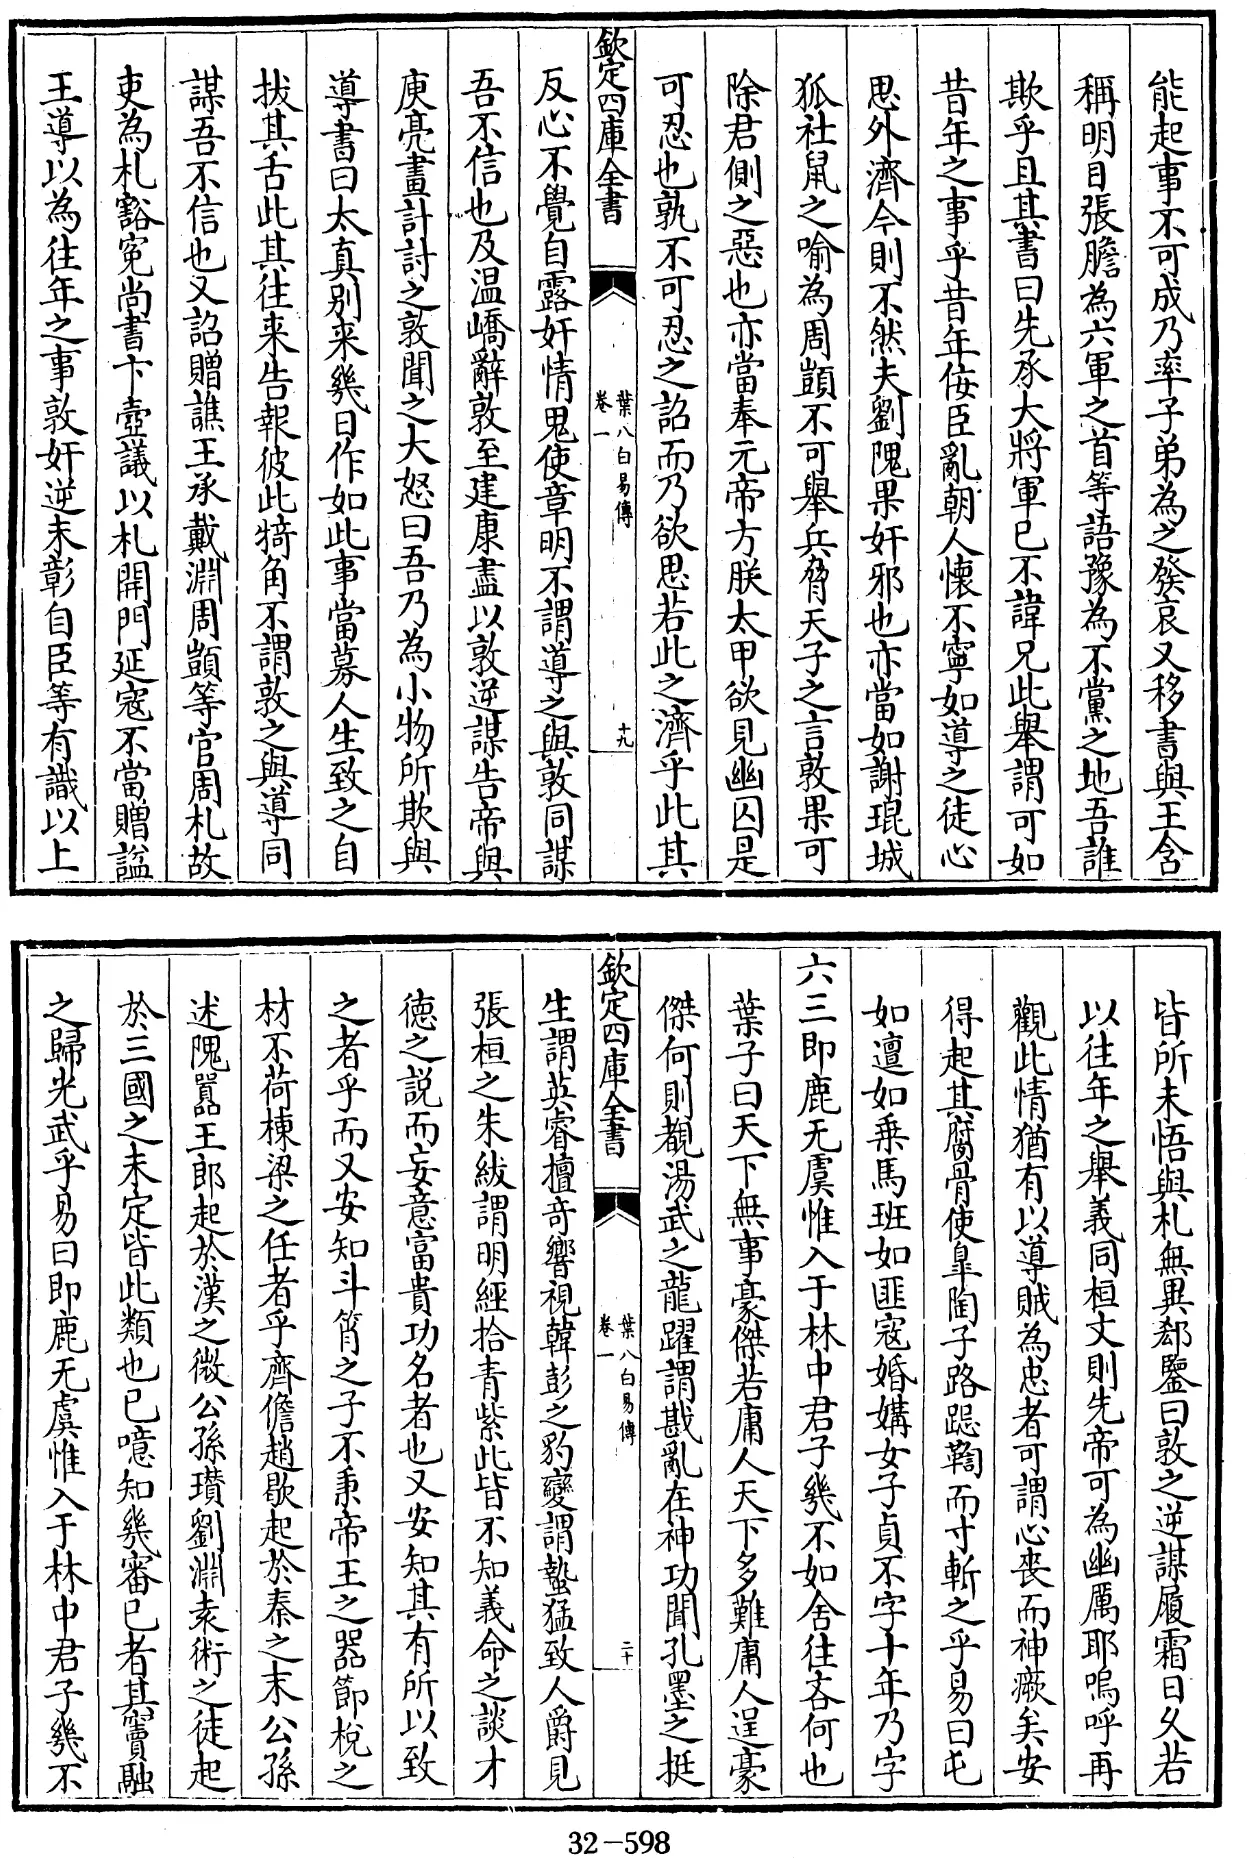 能起事不可成乃率子弟為之發哀又移書與王含
稱明目張膽為六軍之首等語豫為不黨之地吾誰
欺乎且其書曰先承大將軍已不諱兄此舉謂可如
昔年之事乎昔年佞臣亂朝人懷不寧如導之徒心
思外濟今則不然夫劉隗果奸邪也亦當如謝琨城
狐社鼠之喻為周顗不可舉兵脅天子之言敦果可
除君側之惡也亦當奉元帝方朕太甲欲見幽囚是
可忍也孰不可忍之詔而乃欲思若此之濟乎此其
欽定四庫全書
葉八白易傳
卷一
十九
反心不覺自露奸情鬼使章明不謂導之與敦同謀
吾不信也及温嶠辭敦至建康盡以敦逆謀告帝與
庾亮畫計討之敦聞之大怒曰吾乃為小物所欺與
導書曰太真别来幾日作如此事當募人生致之自
拔其舌此其往来告報彼此犄角不謂敦之與導同
謀吾不信也又詔贈譙王承戴淵周顗等官周札故
吏為札豁寃尚書卞壼議以札開門延寇不當贈諡
王導以為往年之事敦奸逆未彰自臣等有識以上
皆所未悟與札無異郄鑒曰敦之逆謀履霜日久若
以往年之舉義同桓文則先帝可為幽厲耶嗚呼再
觀此情猶有以導賊為忠者可謂心喪而神瘚矣安
得起其腐骨使臯陶子路跽鞫而寸斬之乎易曰屯
如邅如乗馬班如匪寇婚媾女子貞不字十年乃字
六三即鹿无虞惟入于林中君子幾不如舍往吝何也
葉子曰天下無事豪傑若庸人天下多難庸人逞豪
傑何則覩湯武之龍躍謂戡亂在神功聞孔墨之挺
欽定四庫全書
葉八白易傳
卷一
二十
生謂英睿擅竒響視韓彭之豹變謂蟄猛致人爵見
張桓之朱紱謂明經拾青紫此皆不知義命之談才
徳之説而妄意富貴功名者也又安知其有所以致
之者乎而又安知斗筲之子不秉帝王之器節梲之
材不荷棟梁之任者乎齊儋趙歇起於秦之末公孫
述隗囂王郎起於漢之微公孫瓚劉淵袁術之徒起
於三國之未定皆此類也已噫知幾審已者其竇融
之歸光武乎易曰即鹿无虞惟入于林中君子幾不
32-598